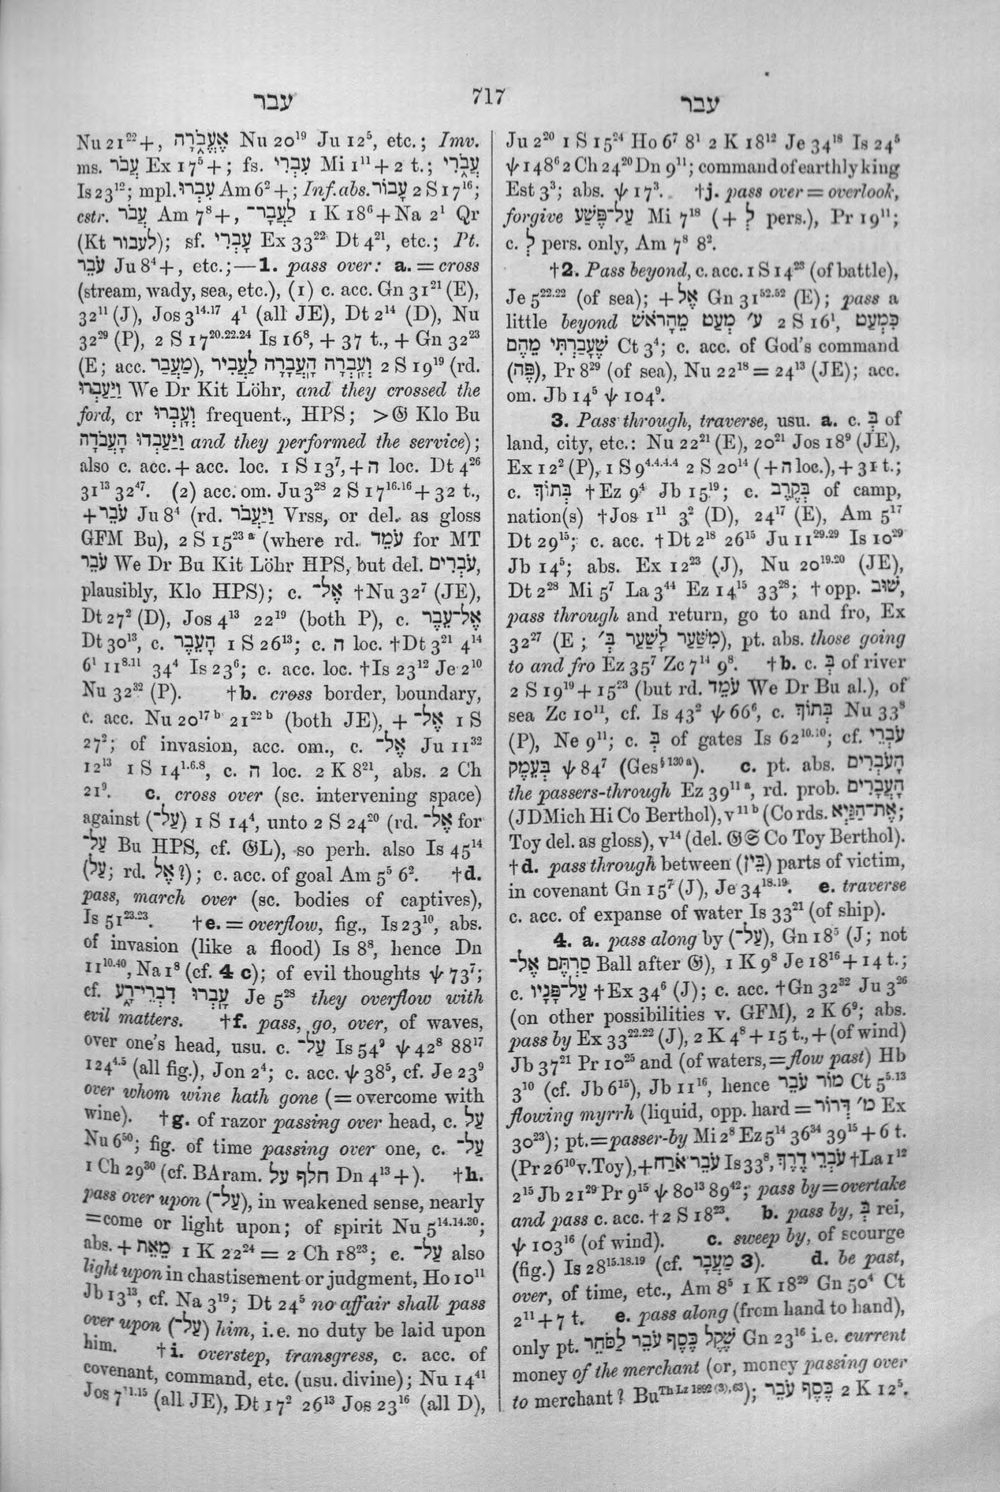 עבר
717
עבר
Nu 21²²+, אֶעְבְּרָה Nu 20¹⁹ Ju 12⁵, etc.; Imv.
ms. עֲבֹר Ex 17⁵+; fs. עִבְרִי Mi 1¹¹+2 t.; עִבְרִי
Is 23¹²; mpl. עִבְרוּ Am 6²+; Inf. abs. עָבוֹר 2 S 17¹⁶;
cstr. עֲבֹר Am 7⁸+, לַעֲבָר־ 1 K 18⁶+Na 2¹ Qr
(Kt לעבור); sf. עָבְרִי Ex 33²² Dt 4²¹, etc.; Pt.
עֹבֵר Ju 8⁴+, etc.;—1. pass over: a. = cross
(stream, wady, sea, etc.), (1) c. acc. Gn 31²¹ (E),
32¹¹ (J), Jos 3¹⁴·¹⁷ 4¹ (all JE), Dt 2¹⁴ (D), Nu
32²⁹ (P), 2 S 17²⁰·²²·²⁴ Is 16⁸, + 37 t., + Gn 32²³
(E; acc. מַעֲבַר), וְעָבְרָה הָעֲבָרָה לַעֲבִיר 2 S 19¹⁹ (rd.
וַיַּעַבְרוּ We Dr Kit Löhr, and they crossed the
ford, or וְעָבְרוּ frequent., HPS; >𝔊 Klo Bu
וַיַּעַבְדוּ הָעֲבֹדָה and they performed the service);
also c. acc. + acc. loc. 1 S 13⁷, + ה loc. Dt 4²⁶
31¹³ 32⁴⁷. (2) acc. om. Ju 3²⁸ 2 S 17¹⁶·¹⁶+32 t.,
+עֹבֵר Ju 8⁴ (rd. וַיַּעֲבֹר Vrss, or del. as gloss
GFM Bu), 2 S 15²³ᵃ (where rd. עֹמֵד for MT
עֹבֵר We Dr Bu Kit Löhr HPS, but del. עֹבְרִים,
plausibly, Klo HPS); c. אֶל־ †Nu 32⁷ (JE),
Dt 27² (D), Jos 4¹³ 22¹⁹ (both P), c. אֶל־עֵבֶר
Dt 30¹³, c. הָעֵבֶר 1 S 26¹³; c. ה loc. †Dt 3²¹ 4¹⁴
6¹ 11⁸·¹¹ 34⁴ Is 23⁶; c. acc. loc. †Is 23¹² Je 2¹⁰
Nu 32³² (P). †b. cross border, boundary,
c. acc. Nu 20¹⁷ᵇ 21²²ᵇ (both JE), + אֶל־ 1 S
27²; of invasion, acc. om., c. אֶל־ Ju 11³²
12¹³ 1 S 14¹·⁶·⁸, c. ה loc. 2 K 8²¹, abs. 2 Ch
21⁹. c. cross over (sc. intervening space)
against (עַל־) 1 S 14⁴, unto 2 S 24²⁰ (rd. אֶל־ for
עַל־ Bu HPS, cf. 𝔊L), so perh. also Is 45¹⁴
(עַל; rd. אֶל?); c. acc. of goal Am 5⁵ 6². †d.
pass, march over (sc. bodies of captives),
Is 51²³·²³. †e. = overflow, fig., Is 23¹⁰, abs.
of invasion (like a flood) Is 8⁸, hence Dn
11¹⁰·⁴⁰, Na 1⁸ (cf. 4 c); of evil thoughts ψ 73⁷;
cf. עָבְרוּ דִבְרֵי־רָע Je 5²⁸ they overflow with
evil matters. †f. pass, go, over, of waves,
over one's head, usu. c. עַל־ Is 54⁹ ψ 42⁸ 88¹⁷
124⁴·⁵ (all fig.), Jon 2⁴; c. acc. ψ 38⁵, cf. Je 23⁹
over whom wine hath gone (= overcome with
wine). †g. of razor passing over head, c. עַל
Nu 6⁵⁰; fig. of time passing over one, c. עַל־
1 Ch 29³⁰ (cf. BAram. חלף על Dn 4¹³+). †h.
pass over upon (עַל־), in weakened sense, nearly
=come or light upon; of spirit Nu 5¹⁴·¹⁴·³⁰;
abs. + מֵאֵת 1 K 22²⁴ = 2 Ch 18²³; c. עַל־ also
light upon in chastisement or judgment, Ho 10¹¹
Jb 13¹³, cf. Na 3¹⁹; Dt 24⁵ no affair shall pass
over upon (עַל־) him, i.e. no duty be laid upon
him. †i. overstep, transgress, c. acc. of
covenant, command, etc. (usu. divine); Nu 14⁴¹
Jos 7¹¹·¹⁵ (all JE), Dt 17² 26¹³ Jos 23¹⁶ (all D),
Ju 2²⁰ 1 S 15²⁴ Ho 6⁷ 8¹ 2 K 18¹² Je 34¹⁸ Is 24⁵
ψ 148⁶ 2 Ch 24²⁰ Dn 9¹¹; command of earthly king
Est 3³; abs. ψ 17³. †j. pass over = overlook,
forgive עַל־פֶּשַׁע Mi 7¹⁸ (+ לְ pers.), Pr 19¹¹;
c. לְ pers. only, Am 7⁸ 8².
†2. Pass beyond, c. acc. 1 S 14²³ (of battle),
Je 5²²·²² (of sea); + אֶל Gn 31⁵²·⁵² (E); pass a
little beyond ע׳ מְעַט מֵהָרֹאשׁ 2 S 16¹, כִּמְעַט
שֶׁעָבַרְתִּי מֵהֶם Ct 3⁴; c. acc. of God's command
(פֶּה), Pr 8²⁹ (of sea), Nu 22¹⁸ = 24¹³ (JE); acc.
om. Jb 14⁵ ψ 104⁹.
3. Pass through, traverse, usu. a. c. בְּ of
land, city, etc.: Nu 22²¹ (E), 20²¹ Jos 18⁹ (JE),
Ex 12² (P), 1 S 9⁴·⁴·⁴·⁴ 2 S 20¹⁴ (+ ה loc.), + 31 t.;
c. בְּתוֹךְ †Ez 9⁴ Jb 15¹⁹; c. בְּקֶרֶב of camp,
nation(s) †Jos 1¹¹ 3² (D), 24¹⁷ (E), Am 5¹⁷
Dt 29¹⁵; c. acc. †Dt 2¹⁸ 26¹⁵ Ju 11²⁹·²⁹ Is 10²⁹
Jb 14⁵; abs. Ex 12²³ (J), Nu 20¹⁹·²⁰ (JE),
Dt 2²⁸ Mi 5⁷ La 3⁴⁴ Ez 14¹⁵ 33²⁸; †opp. שׁוּב,
pass through and return, go to and fro, Ex
32²⁷ (E; ע׳ מִשַּׁעַר לָשַׁעַר בְּ), pt. abs. those going
to and fro Ez 35⁷ Zc 7¹⁴ 9⁸. †b. c. בְּ of river
2 S 19¹⁹ + 15²³ (but rd. עֹמֵד We Dr Bu al.), of
sea Zc 10¹¹, cf. Is 43² ψ 66⁶, c. בְּתוֹךְ Nu 33⁸
(P), Ne 9¹¹; c. בְּ of gates Is 62¹⁰·¹⁰; cf. עֹבְרֵי
בְּעֵמֶק ψ 84⁷ (Ges§¹³⁰ᵃ). c. pt. abs. הָעֹבְרִים
the passers-through Ez 39¹¹ᵃ, rd. prob. הָעֲבָרִים
(JDMich Hi Co Berthol), v¹¹ᵇ (Co rds. אֶת־הַגַּיְא;
Toy del. as gloss), v¹⁴ (del. 𝔊𝔖 Co Toy Berthol).
†d. pass through between (בֵּין) parts of victim,
in covenant Gn 15⁷ (J), Je 34¹⁸·¹⁹. e. traverse
c. acc. of expanse of water Is 33²¹ (of ship).
4. a. pass along by (עַל־), Gn 18⁵ (J; not
סַרְתֶּם אֶל־ Ball after 𝔊), 1 K 9⁸ Je 18¹⁶ + 14 t.;
c. עַל־פָּנָיו †Ex 34⁶ (J); c. acc. †Gn 32³² Ju 3²⁶
(on other possibilities v. GFM), 2 K 6⁹; abs.
pass by Ex 33²²·²² (J), 2 K 4⁸ + 15 t., + (of wind)
Jb 37²¹ Pr 10²⁵ and (of waters, = flow past) Hb
3¹⁰ (cf. Jb 6¹⁵), Jb 11¹⁶, hence מוֹר עֹבֵר Ct 5⁵·¹³
flowing myrrh (liquid, opp. hard = מ׳ דְּרוֹר Ex
30²³); pt. = passer-by Mi 2⁸ Ez 5¹⁴ 36³⁴ 39¹⁵ + 6 t.
(Pr 26¹⁰ v. Toy), + עֹבֵר אֹרַח Is 33⁸, עֹבְרֵי דֶרֶךְ †La 1¹²
2¹⁵ Jb 21²⁹ Pr 9¹⁵ ψ 80¹³ 89⁴²; pass by = overtake
and pass c. acc. †2 S 18²³. b. pass by, בְּ rei,
ψ 103¹⁶ (of wind). c. sweep by, of scourge
(fig.) Is 28¹⁵·¹⁸·¹⁹ (cf. מַעֲבָר 3). d. be past,
over, of time, etc., Am 8⁵ 1 K 18²⁹ Gn 50⁴ Ct
2¹¹ + 7 t. e. pass along (from hand to hand),
only pt. שֶׁקֶל כֶּסֶף עֹבֵר לַסֹּחֵר Gn 23¹⁶ i.e. current
money of the merchant (or, money passing over
to merchant? Bu ᵀʰ ᴸᶻ ¹⁸⁹² ⁽³⁾, ⁶³); כֶּסֶף עֹבֵר 2 K 12⁵.